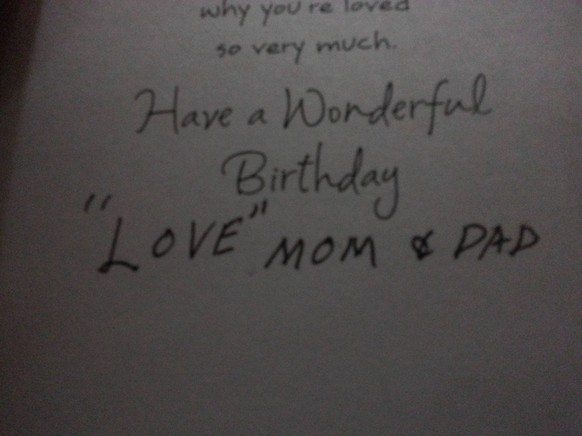 why you're loved
so very much.
Have a Wonderful
Birthday
"LOVE" MOM & DAD